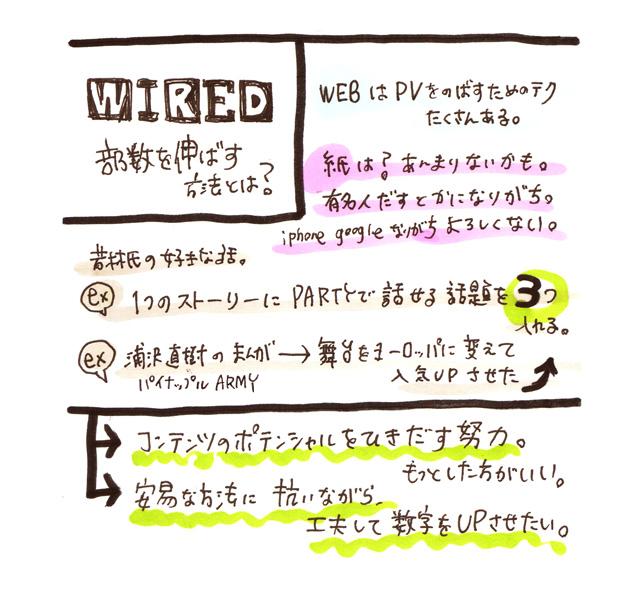 WIRED
部数を伸ばす
方法とは?
WEBはPVをのばすためのテク
たくさんある。
紙は? あんまりないかも。
有名人だすとかになりがち。
iphone google ながち よろしくない。
若林氏の好きな話。
ex 1つのストーリーに PARTとで 話せる 話題を 3つ
入れる。
ex 浦沢直樹のまんが → 舞台をヨーロッパに変えて
パイナップルARMY
人気UPさせた
コンテンツのポテンシャルをひきだす努力。
もっとした方がいい。
安易な方法に 抗いながら、
工夫して 数字をUPさせたい。